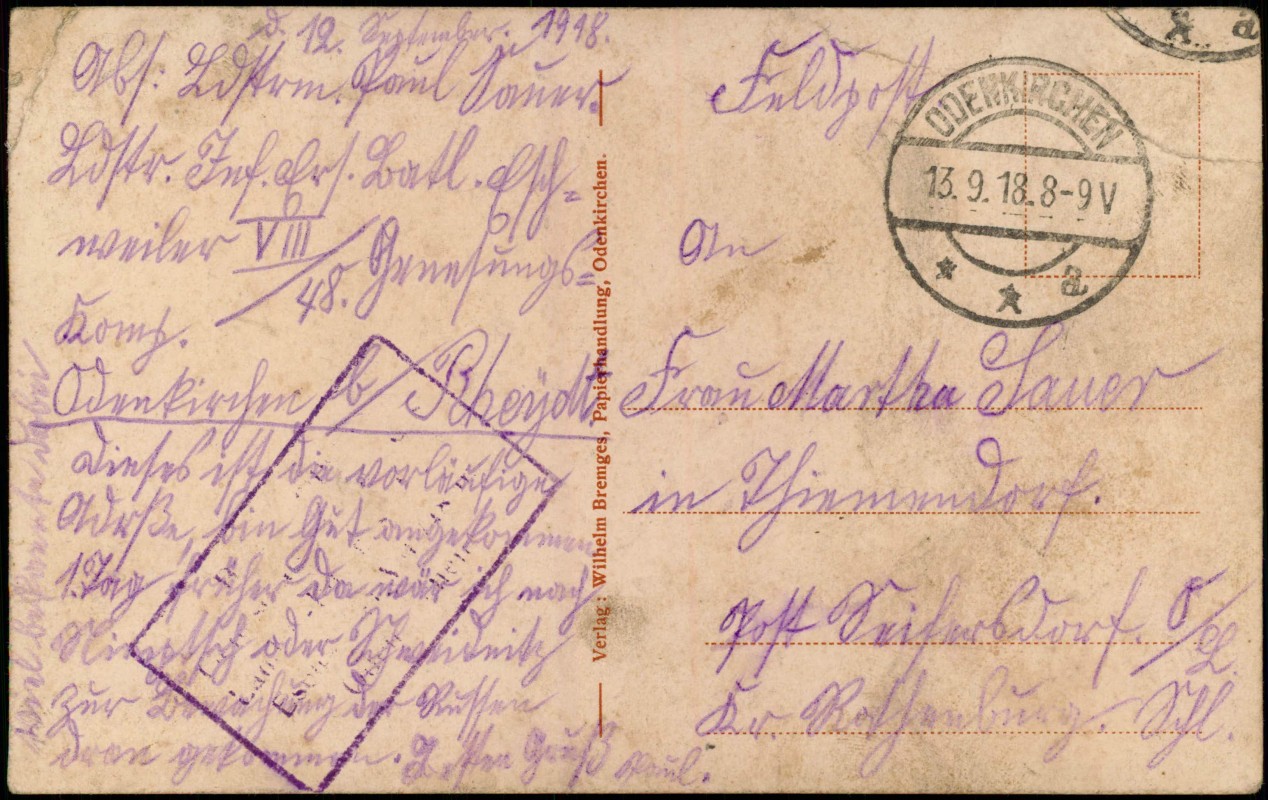 d. 12. September. 1918.
Abs: Ldstrm. Paul Sauer.
Ldstr. Inf. Ers. Batl. Esch-
weiler VIII/48. Genesungs-
Komp.
Odenkirchen b/Rheydt
Dieses ist die vorläufige
Adrße, bin Gut angekommen
1. Tag früher da wär ich nach
Nimptsch oder Schweidnitz
zur Bewachung der Russen
dran gekommen. Gruß Paul.
viel bekannte dabei
Verlag: Wilhelm Bremges, Papierhandlung, Odenkirchen.
Feldpost
ODENKIRCHEN
13.9.18.8-9V
* * a
* a
An
Frau Martha Sauer
in Thiemendorf.
Post Seifersdorf. O/L.
Kr. Rothenburg. Schl.